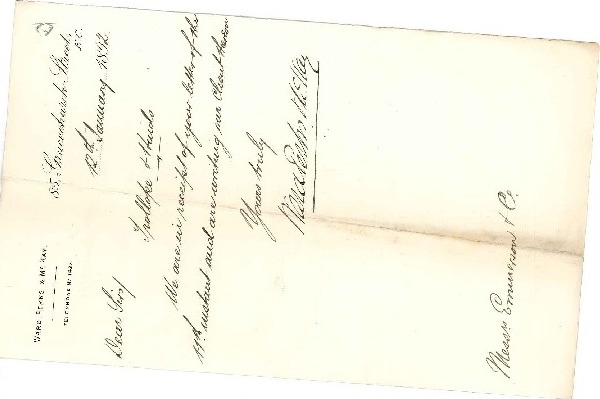 WARD PERKS & McKAY.
TELEPHONE No
85, Gracechurch Street,
E.C.
12th January 1892
Dear Sirs
Trollope &
We are in receipt of your letter of the
11th instant and are writing our Client hereon
Yours truly
Ward Perks & McKay
Messrs Emmerson & Co.